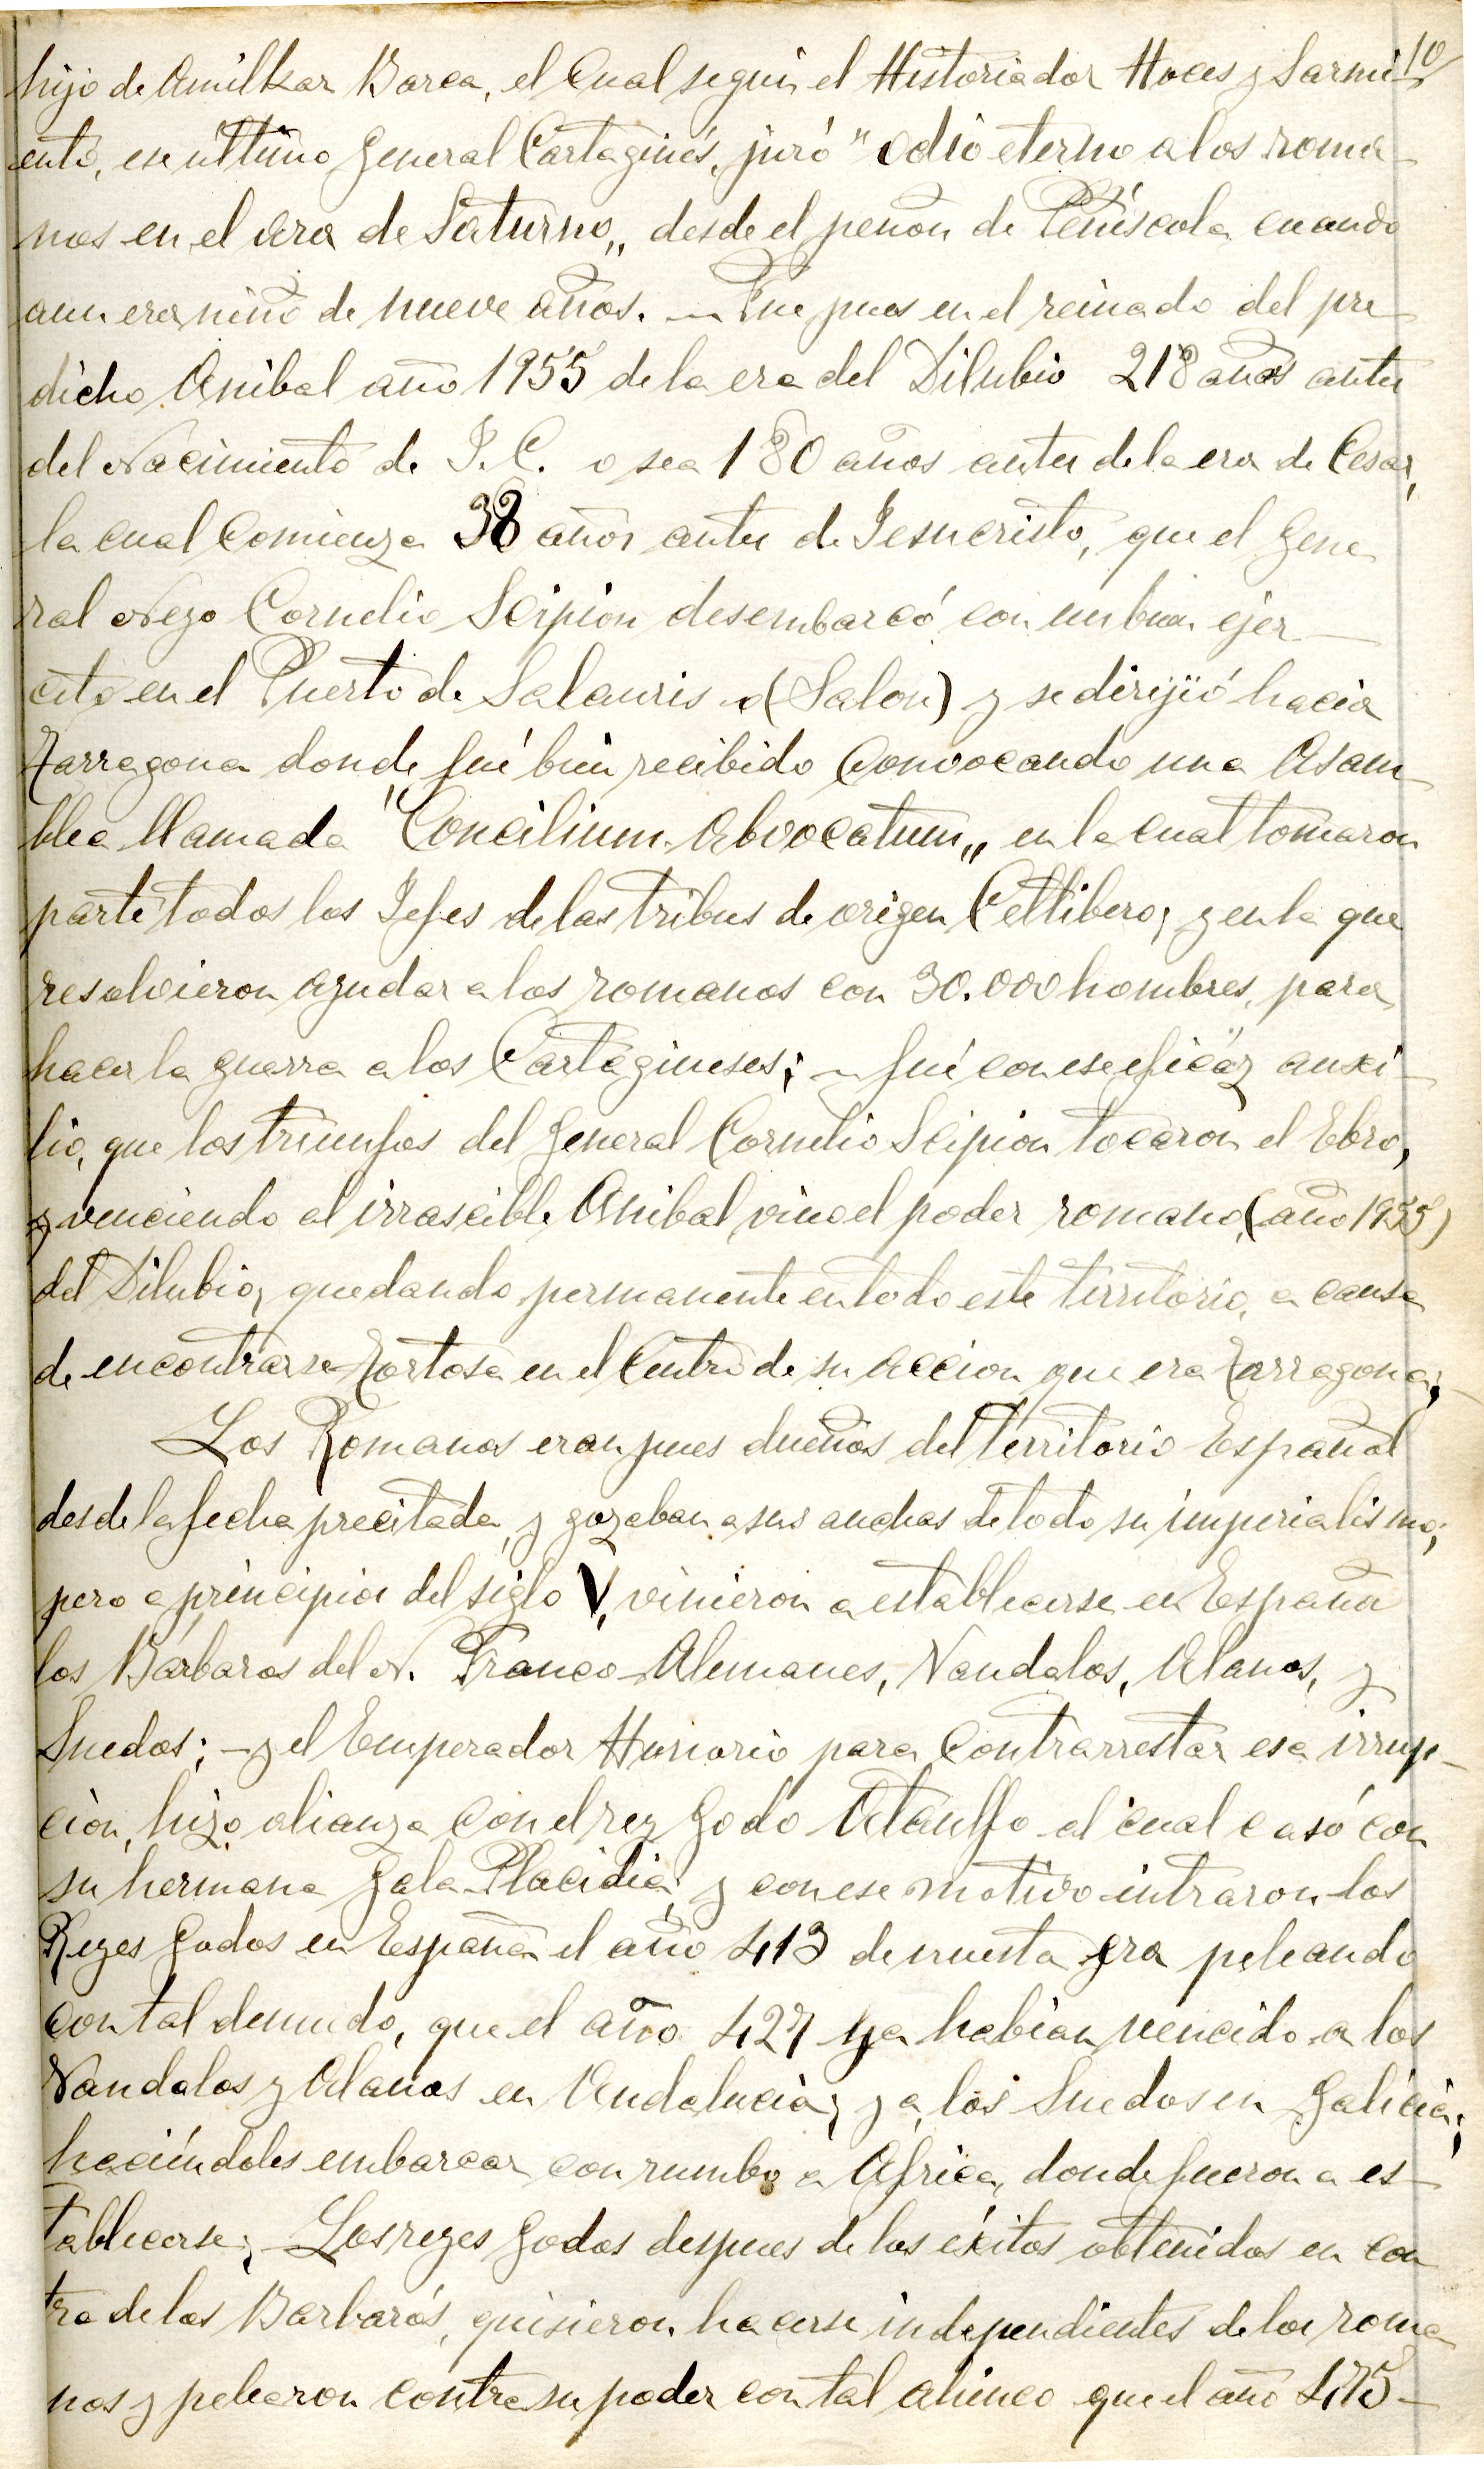 10
hijo de Amilkar Barca, el Cual segun el Historiador Hoces y Sarmi-
ento, ese ultimo General Cartaginés, juró "odio eterno a los roma-
nos en el ara de Saturno„ desde el peñon de Peñiscola cuando
aun era niño de nueve años. — Fue pues en el reinado del pre-
dicho Anibal año 1955 de la era del Dilubio 218 años antes
del Nacimiento de J.C. o sea 180 años antes de la era de Cesar,
la cual Comienza 38 años antes de Jesucristo, que el Gene-
ral Neyo Cornelio Scipion desembarcó con un buen ejer-
cito en el Puerto de Salauris o (Salou) y se dirijió hacia
Tarragona donde fué bien recibido Convocando una Asam-
blea llamada "Concilium Abvocatum„ en la cual tomaron
parte todos los Jefes de las tribus de origen Celtibero, y en la que
resolvieron ayudar a los romanos con 30.000 hombres, para
hacer la guerra a los Cartagineses; — fué con ese eficáz auxi-
lio, que los triunfos del General Cornelio Scipion tocaron el Ebro,
y venciendo al irrascible Anibal vino el poder romano, (año 1955)
del Dilubio, quedando permanente en todo este territorio, a causa
de encontrarse Tortosa en el Centro de su accion que era Tarragona;
Los Romanos eran pues dueños del territorio Español
desde la fecha precitada, y gozaban a sus anchas de todo su imperialismo;
pero a principios del siglo V, vinieron a establecerse en España
los Bárbaros del N. Franco-Alemanes, Vandalos, Alanos, y
Suedos; — y el Emperador Hunorio para Contrarrestar esa irrup-
cion, hizo alianza con el rey Godo Ataulfo al cual casó con
su hermana Gala-Placidia; y con ese motivo intraron los
Reyes Godos en España el año 413 de nuesta era peleando
con tal denuedo, que el año 427 ya habian vencido a los
Vandalos y Alanos en Andalucia; y a los Suedos en Galicia;
haciéndoles embarcar con rumbo a Africa, donde fueron a es-
tablecerse; — Los reyes Godos despues de los éxitos obtenidos en con
tra de los Barbarós, quisieron hacerse independientes de los roma
nos y pelearon contra su poder con tal ahinco que el año 475-